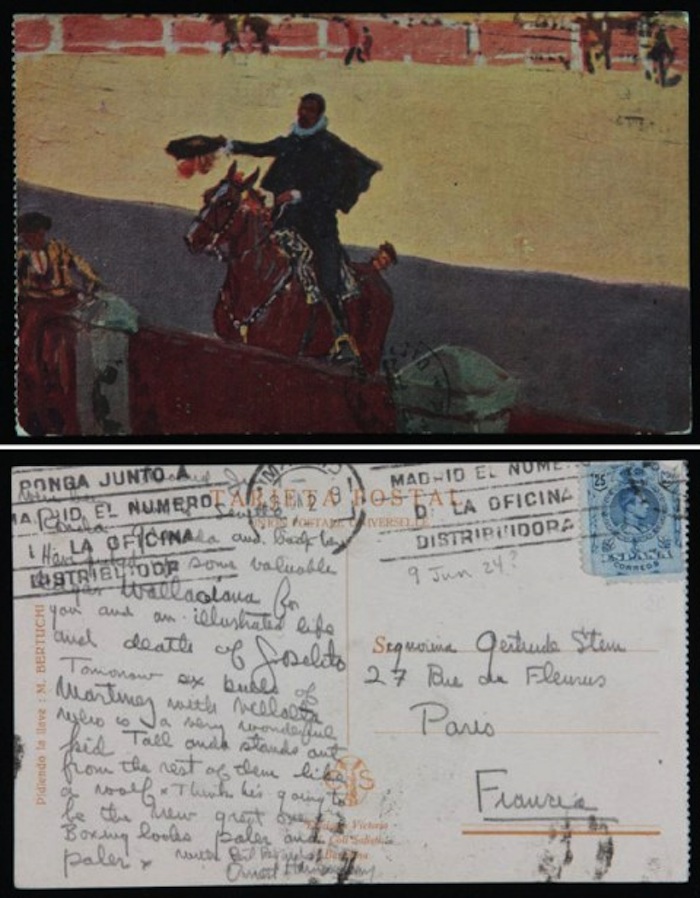 PONGA JUNTO A
MADRID EL NUMERO
LA OFICINA
DISTRIBUIDOR
MAD-ID EL NUME
D LA OFICINA
DISTRIBUIDORA
TARJETA POSTAL
UNION POSTALE UNIVERSELLE
25
ESPAÑA
CORREOS
9 Jun 24?
Ronda Granada and back
Have some valuable
Wallaciana for
you and an illustrated life
and death of Joselito
Tomorrow six bulls of
Martinez with Villalta
who is a very wonderful
kid Tall and stands out
from the rest of them like
a wolf x Think he's going to
be the new great one x
Boxing looks paler and
paler x
Ernest Hemingway
Segnorina Gertrude Stein
27 Rue de Fleurus
Paris
Francia
Pidiendo la llave : M. BERTUCHI
Victoria
Coll Salieti
Barcelona